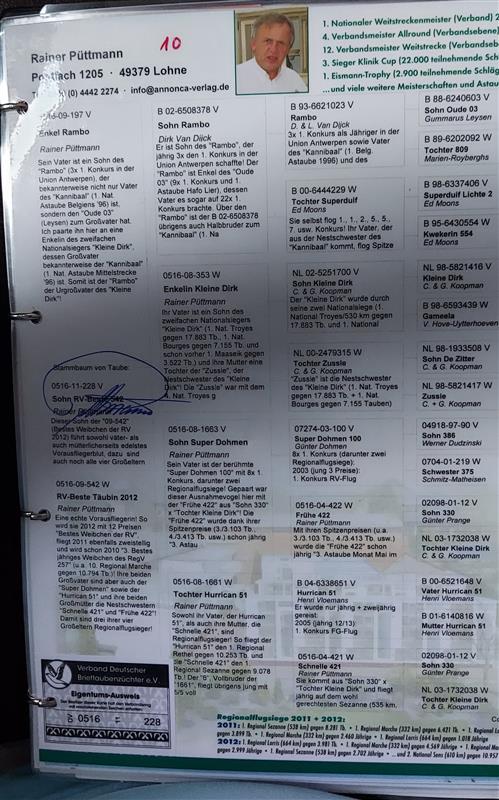 Rainer Püttmann
10
Postfach 1205 · 49379 Lohne
(0) 4442 2274 · info@annonca-verlag.de
1. Nationaler Weitstreckenmeister (Verband)
4. Verbandsmeister Allround (Verbandsebene)
12. Verbandsmeister Weitstrecke
3. Sieger Klinik Cup (22.000 teilnehmende
1. Eismann-Trophy (2.900 teilnehmende
...und viele weitere Meisterschaften und
16-09-197 V
Enkel Rambo
Rainer Püttmann
Sein Vater ist ein Sohn des
"Rambo" (3x 1. Konkurs in der
Union Antwerpen), der
bekannterweise nicht nur Vater
des "Kannibaal" (1. Nat.
Astaube Belgiens '96) ist,
sondern den "Oude 03"
(Leysen) zum Großvater hat.
Ich paarte ihn hier an eine
Enkelin des zweifachen
Nationalsiegers "Kleine Dirk",
dessen Großvater
bekannterweise der "Kannibaal"
(1. Nat. Astaube Mittelstrecke
'96) ist. Somit ist der "Rambo"
der Urgroßvater des "Kleine
Dirk"!
Stammbaum von Taube:
0516-11-228 V
Sohn RV-Beste 542
Rainer Püttmann
Dieser Sohn der "09-542"
(Bestes Weibchen der RV
2012) führt sowohl väter- als
auch mütterlicherseits edelstes
Vorausfliegerblut, dazu sind
auch noch alle vier Großeltern
0516-09-542 W
RV-Beste Täubin 2012
Rainer Püttmann
Eine echte Vorausfliegerin! So
wird sie 2012 mit 12 Preisen
"Bestes Weibchen der RV",
fliegt 2011 ebenfalls zweistellig
und wird schon 2010 "3. Bestes
jähriges Weibchen des RegV
257" (u.a. 10. Regional Marche
gegen 10.794 Tb.)! Ihre beiden
Großväter sind aber auch der
"Super Dohmen" sowie der
"Hurrican 51" und ihre beiden
Großmütter die Nestschwestern
"Schnelle 421" und "Frühe 422"!
Damit sind drei ihrer vier
Großeltern Regionalflugsieger!
B 02-6508378 V
Sohn Rambo
Dirk Van Dijck
Er ist Sohn des "Rambo", der
jährig 3x den 1. Konkurs in der
Union Antwerpen schaffte! Der
"Rambo" ist Enkel des "Oude
03" (9x 1. Konkurs und 1.
Astaube Hafo Lier), dessen
Vater es sogar auf 22x 1.
Konkurs brachte. Über den
"Rambo" ist der B 02-6508378
übrigens auch Halbbruder zum
"Kannibaal" (1. Na
0516-08-353 W
Enkelin Kleine Dirk
Rainer Püttmann
Ihr Vater ist ein Sohn des
zweifachen Nationalsiegers
"Kleine Dirk" (1. Nat. Troyes
gegen 17.883 Tb., 1. Nat.
Bourges gegen 7.155 Tb. und
schon vorher 1. Maaseik gegen
3.522 Tb.) und ihre Mutter eine
Tochter der "Zussie", der
Nestschwester des "Kleine
Dirk"! Die "Zussie" war mit dem
4. Nat. Troyes g
0516-08-1663 V
Sohn Super Dohmen
Rainer Püttmann
Sein Vater ist der berühmte
"Super Dohmen 100" mit 8x 1.
Konkurs, darunter zwei
Regionalflugsiege! Gepaart war
dieser Ausnahmevogel hier mit
der "Frühe 422" aus "Sohn 330"
x "Tochter Kleine Dirk"! Die
"Frühe 422" wurde dank ihrer
Spitzenpreise (3./3.103 Tb.,
4./3.413 Tb. usw.) schon jährig
"3. Astau
0516-08-1661 W
Tochter Hurrican 51
Rainer Püttmann
Sowohl ihr Vater, der Hurrican
51", als auch ihre Mutter, die
"Schnelle 421", sind
Regionalflugsieger! So fliegt der
"Hurrican 51" den 1. Regional
Rethel gegen 10.253 Tb. und
die "Schnelle 421" den 1.
Regional Sezanne gegen 9.078
Tb.! Der "6", Vollbruder der
1661", fliegt übrigens jung mit
5/5 voll
B 93-6621023 V
Rambo
D. & L. Van Dijck
3x 1. Konkurs als Jähriger in der
Union Antwerpen sowie Vater
des "Kannibaal" (1. Belg.
Astaube 1996) und des
B 00-6444229 W
Tochter Superduif
Ed Moons
Sie selbst flog 1., 1., 2., 5., 5.,
7. usw. Konkurs! Ihr Vater, der
aus der Nestschwester des
"Kannibaal" kommt, flog Spitze
NL 02-5251700 V
Sohn Kleine Dirk
C. & G. Koopman
Der "Kleine Dirk" wurde durch
seine zwei Nationalsiege (1.
National Troyes/530 km gegen
17.883 Tb. und 1. National
NL 00-2479315 W
Tochter Zussie
C. & G. Koopman
"Zussie" ist die Nestschwester
des "Kleine Dirk" (1. Nat. Troyes
gegen 17.883 Tb. + 1. Nat.
Bourges gegen 7.155 Tauben)
07274-03-100 V
Super Dohmen 100
Günter Dohmen
8x 1. Konkurs (darunter zwei
Regionalflugsiege):
2003 (jung 3 Preise):
1. Konkurs RV-Flug
0516-04-422 W
Frühe 422
Rainer Püttmann
Mit ihren Spitzenpreisen (u.a.
3./3.103 Tb., 4./3.413 Tb. usw.)
wurde die "Frühe 422" schon
jährig "3. Astaube Monat Mai im
B 04-6338651 V
Hurrican 51
Henri Vloemans
Er wurde nur jährig + zweijährig
gereist:
2005 (jährig 12/13):
1. Konkurs FG-Flug
0516-04-421 W
Schnelle 421
Rainer Püttmann
Sie kommt aus "Sohn 330" x
"Tochter Kleine Dirk" und fliegt
jährig auf dem wohl
gerechtesten Sezanne (535 km,
B 88-6240603 V
Sohn Oude 03
Gummarus Leysen
B 89-6202092 W
Tochter 809
Marien-Royberghs
B 98-6337406 V
Superduif Lichte 2
Ed Moons
B 95-6430554 W
Kwekerin 554
Ed Moons
NL 98-5821416 V
Kleine Dirk
C. & G. Koopman
B 98-6593439 W
Gameela
V. Hove-Uytterhoeven
NL 98-1933508 V
Sohn De Zitter
C. & G. Koopman
NL 98-5821417 W
Zussie
C. + G. Koopman
04918-97-90 V
Sohn 386
Werner Dudzinski
0704-01-219 W
Schwester 375
Schmitz-Matheisen
02098-01-12 V
Sohn 330
Günter Prange
NL 03-1732038 W
Tochter Kleine Dirk
C. & G. Koopman
B 00-6521648 V
Vater Hurrican 51
Henri Vloemans
B 01-6140816 W
Mutter Hurrican 51
Henri Vloemans
02098-01-12 V
Sohn 330
Günter Prange
NL 03-1732038 W
Tochter Kleine Dirk
C. & G. Koopman
Verband Deutscher
Brieftaubenzüchter e.V.
Eigentums-Ausweis
0516
228
Regionalflugsiege 2011 + 2012: